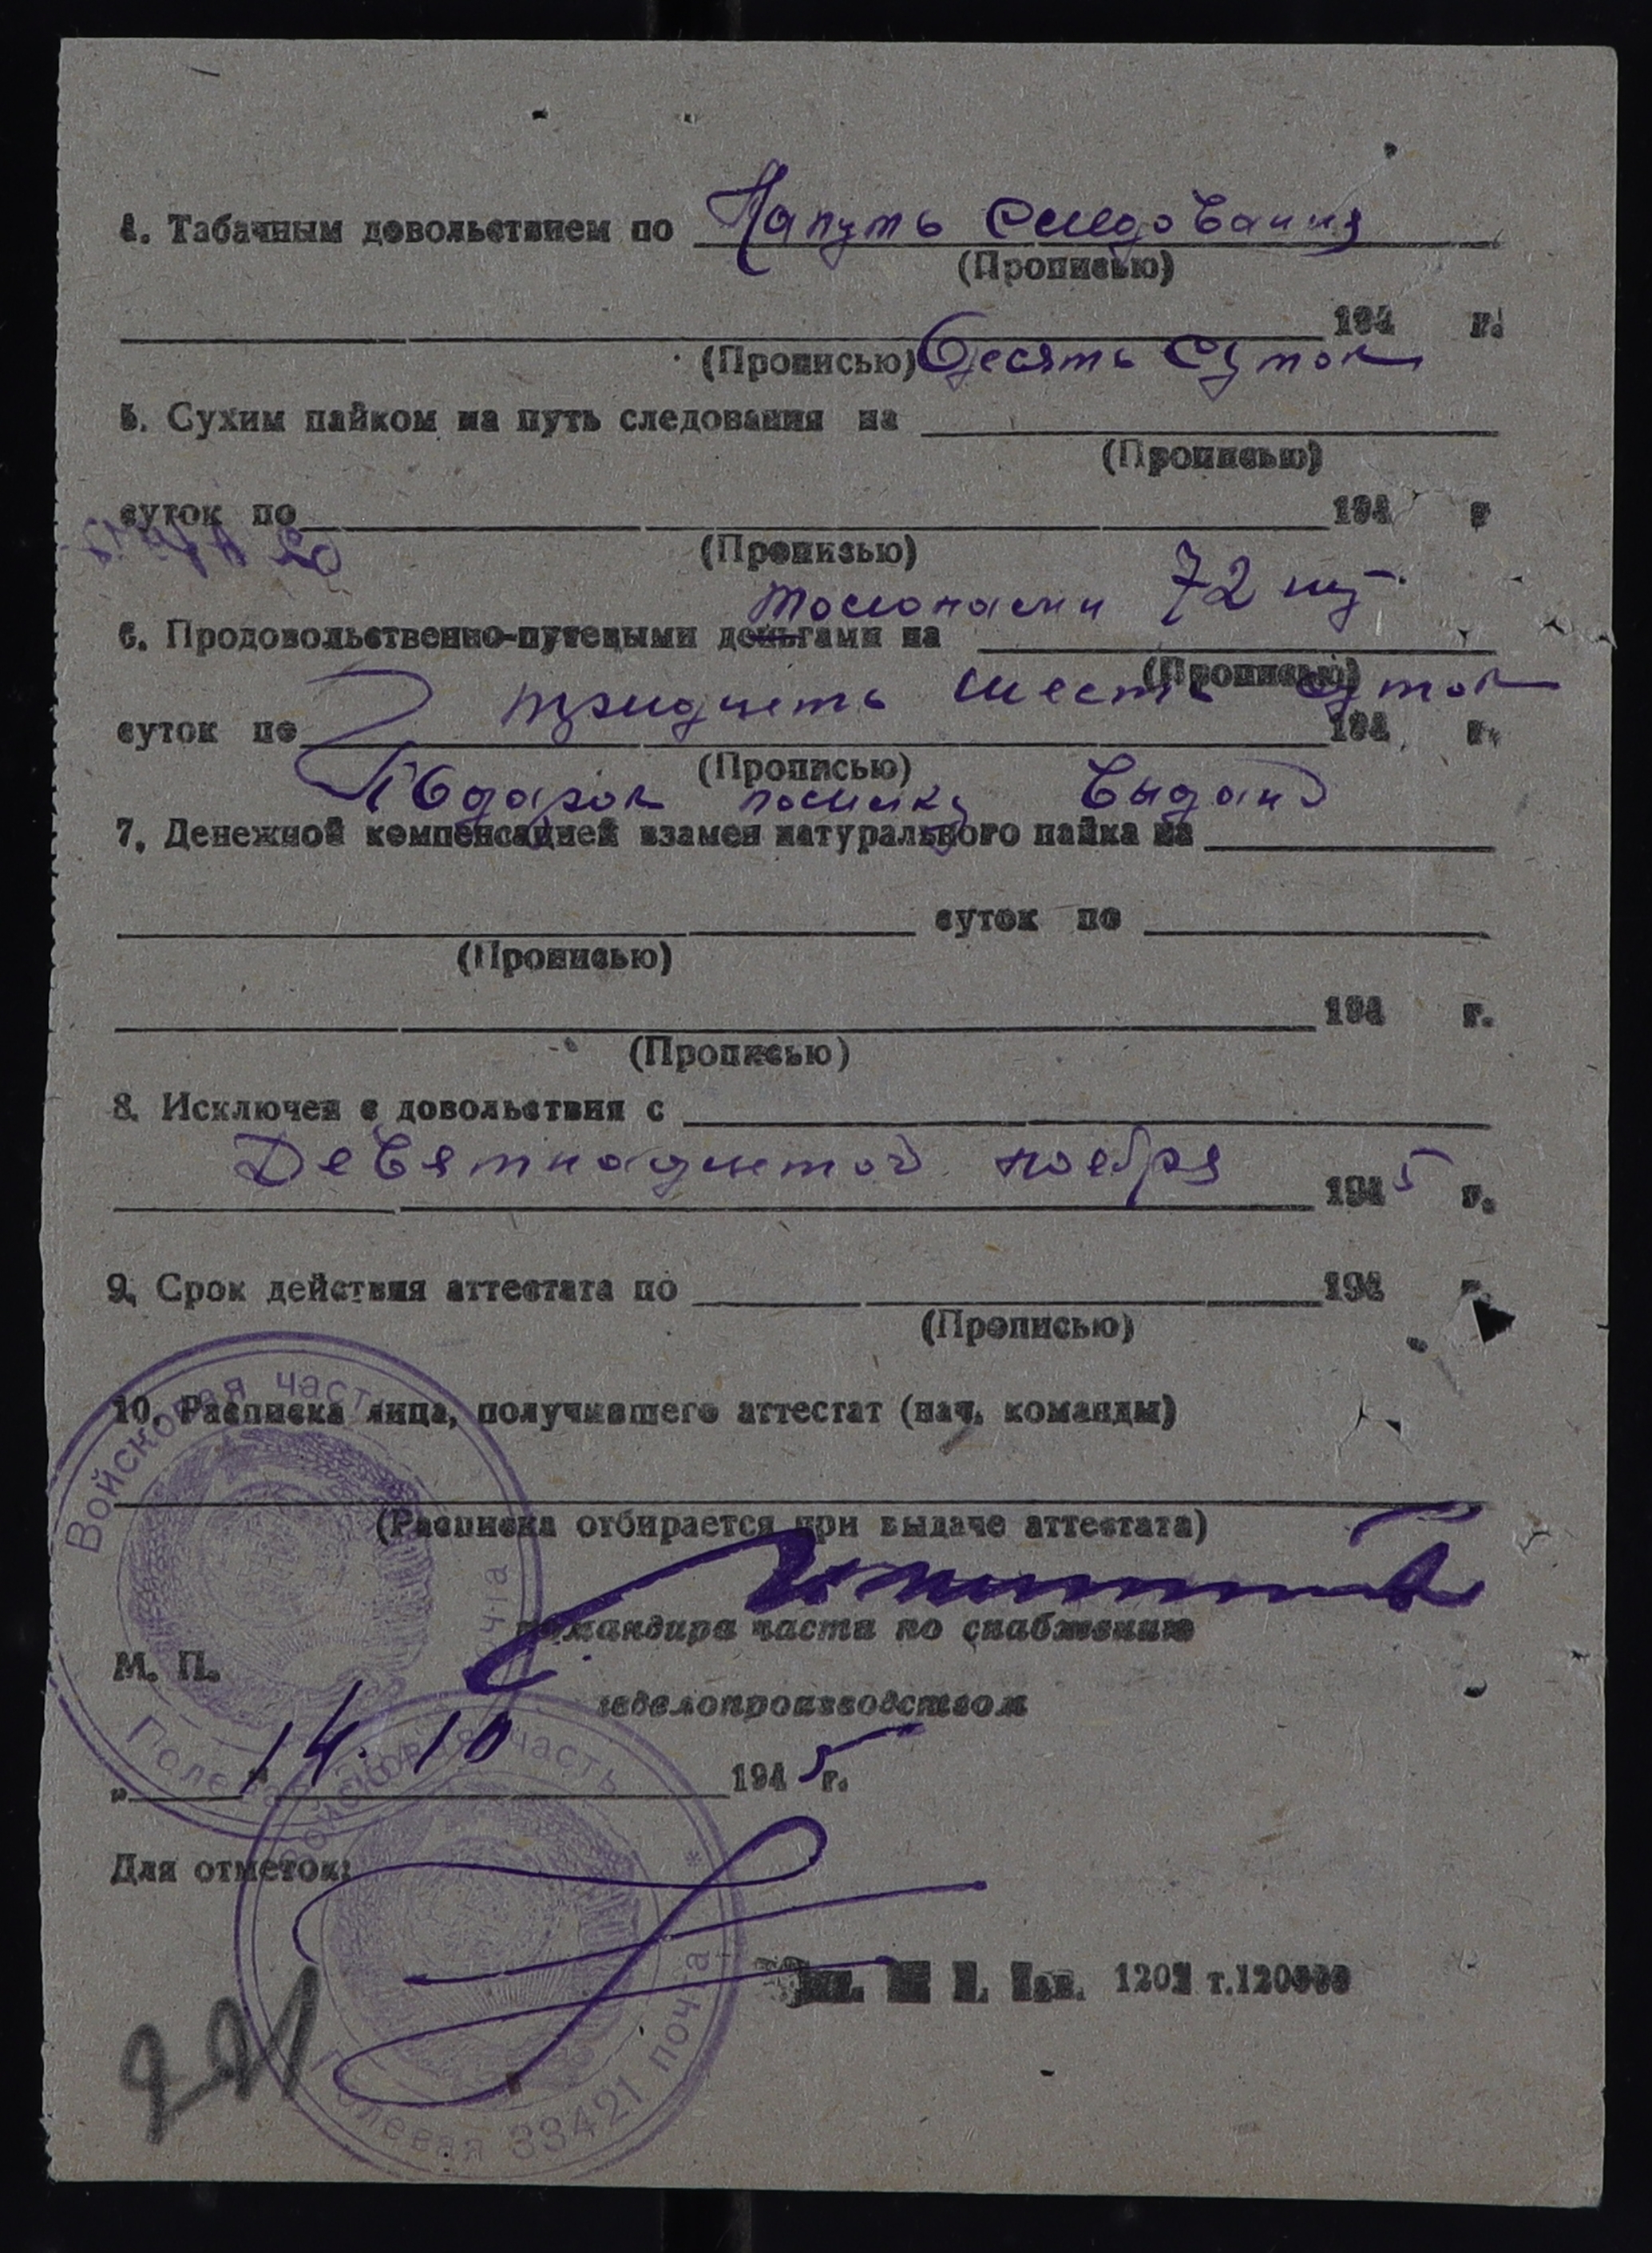 4. Табачным довольствием по На путь следования
(Прописью)
194 г.
(Прописью) десять суток
5. Сухим пайком на путь следования на
(Прописью)
суток по 194 г
(Прописью)
72 шт.
6. Продовольственно-путевыми деньгами на
(Прописью)
тридцать шесть суток
суток по 194 г.
(Прописью)
Подарок посылку выдан
7. Денежной компенсацией взамен натурального пайка на
суток по
(Прописью)
194 г.
(Прописью)
8. Исключен с довольствия с
Девятнадцатого ноября 1945 г.
9. Срок действия аттестата по 194 г.
(Прописью)
10. Расписка лица, получившего аттестат (нач. команды)
(Расписка отбирается при выдаче аттестата)
командира части по снабжению
М. П.
делопроизводством
„14." 10 1945 г.
Для отметок:
т.120000
Войсковая часть
Полевая почта
Войсковая часть
Полевая 33421 почта